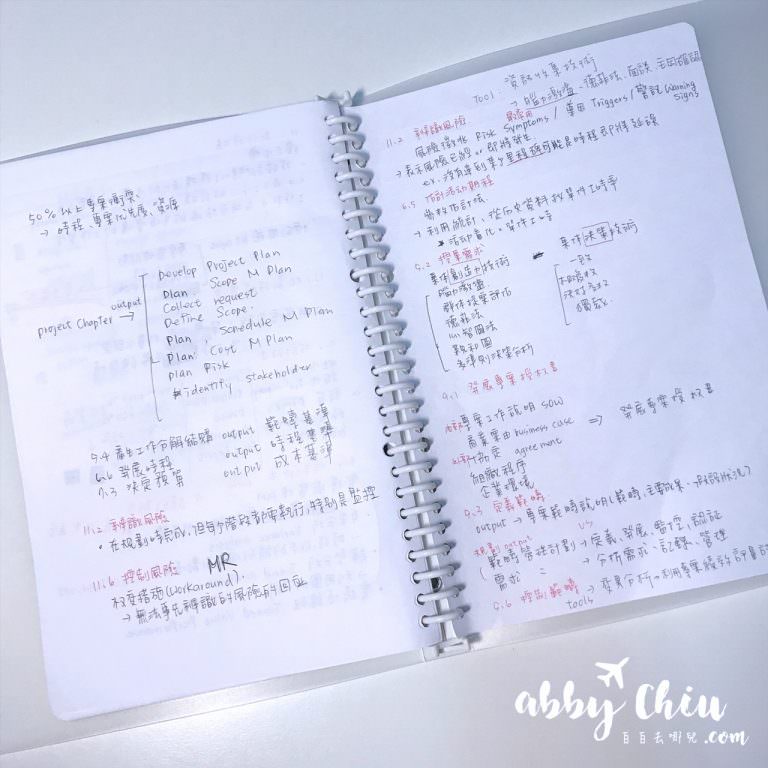 50% 以上專案衝突
→ 時程、專案優先度、資源
project Chapter output →
Develop Project Plan
Plan Scope M Plan
Collect request
Define Scope.
Plan. Schedule M Plan
Plan Cost M Plan
plan Risk
identify stakeholder
5.4 產生工作分解結構 output 範疇基準
6.6 發展時程 output 時程基準
7.3 決定預算 output 成本基準
11.2 辨識風險
。在規劃時完成,但每個階段都要執行,特別是監控
11.6 控制風險 MR
權變措施(Workaround)
→ 無法事先辨識的風險的回應
資訊收集技術
Tool: → 腦力激盪、德菲法、面談、主因確認
11.2 辨識風險
風險徵兆 Risk Symptoms / 導因 Triggers / 警訊 Warning Signs
→ 表示風險已經 or 即將發生
ex. 沒有達到某個里程碑可能是時程即將延誤
6.5 估計活動期程
參數估計法
→ 利用統計、從歷史資料找單位工時率
活動量化 × 單位工時
5.2 搜集需求
羣体創造力技術
腦力激盪
群体提案評估
德菲法
心智圖法
親和圖
多準則決策分析
羣体決策技術
一致
大多數
相對多數
獨裁
4.1 發展專案授权書
專案工作說明 SOW
商業案由 business case
協定 agreement
組織程序
企業環境
⇒ 發展專案授权書
5.3 定義範疇
output → 專案範疇說明(範疇、主要成果、假設狀況)
規劃 output vs
範疇管理計劃 → 定義、發展、監控、認証
需求 〃 → 分析需求、記錄、管理
5.6 控制範疇
tools → 變異分析 ⇒ 利用專案績效評量
abby Chiu
百百去哪兒.com